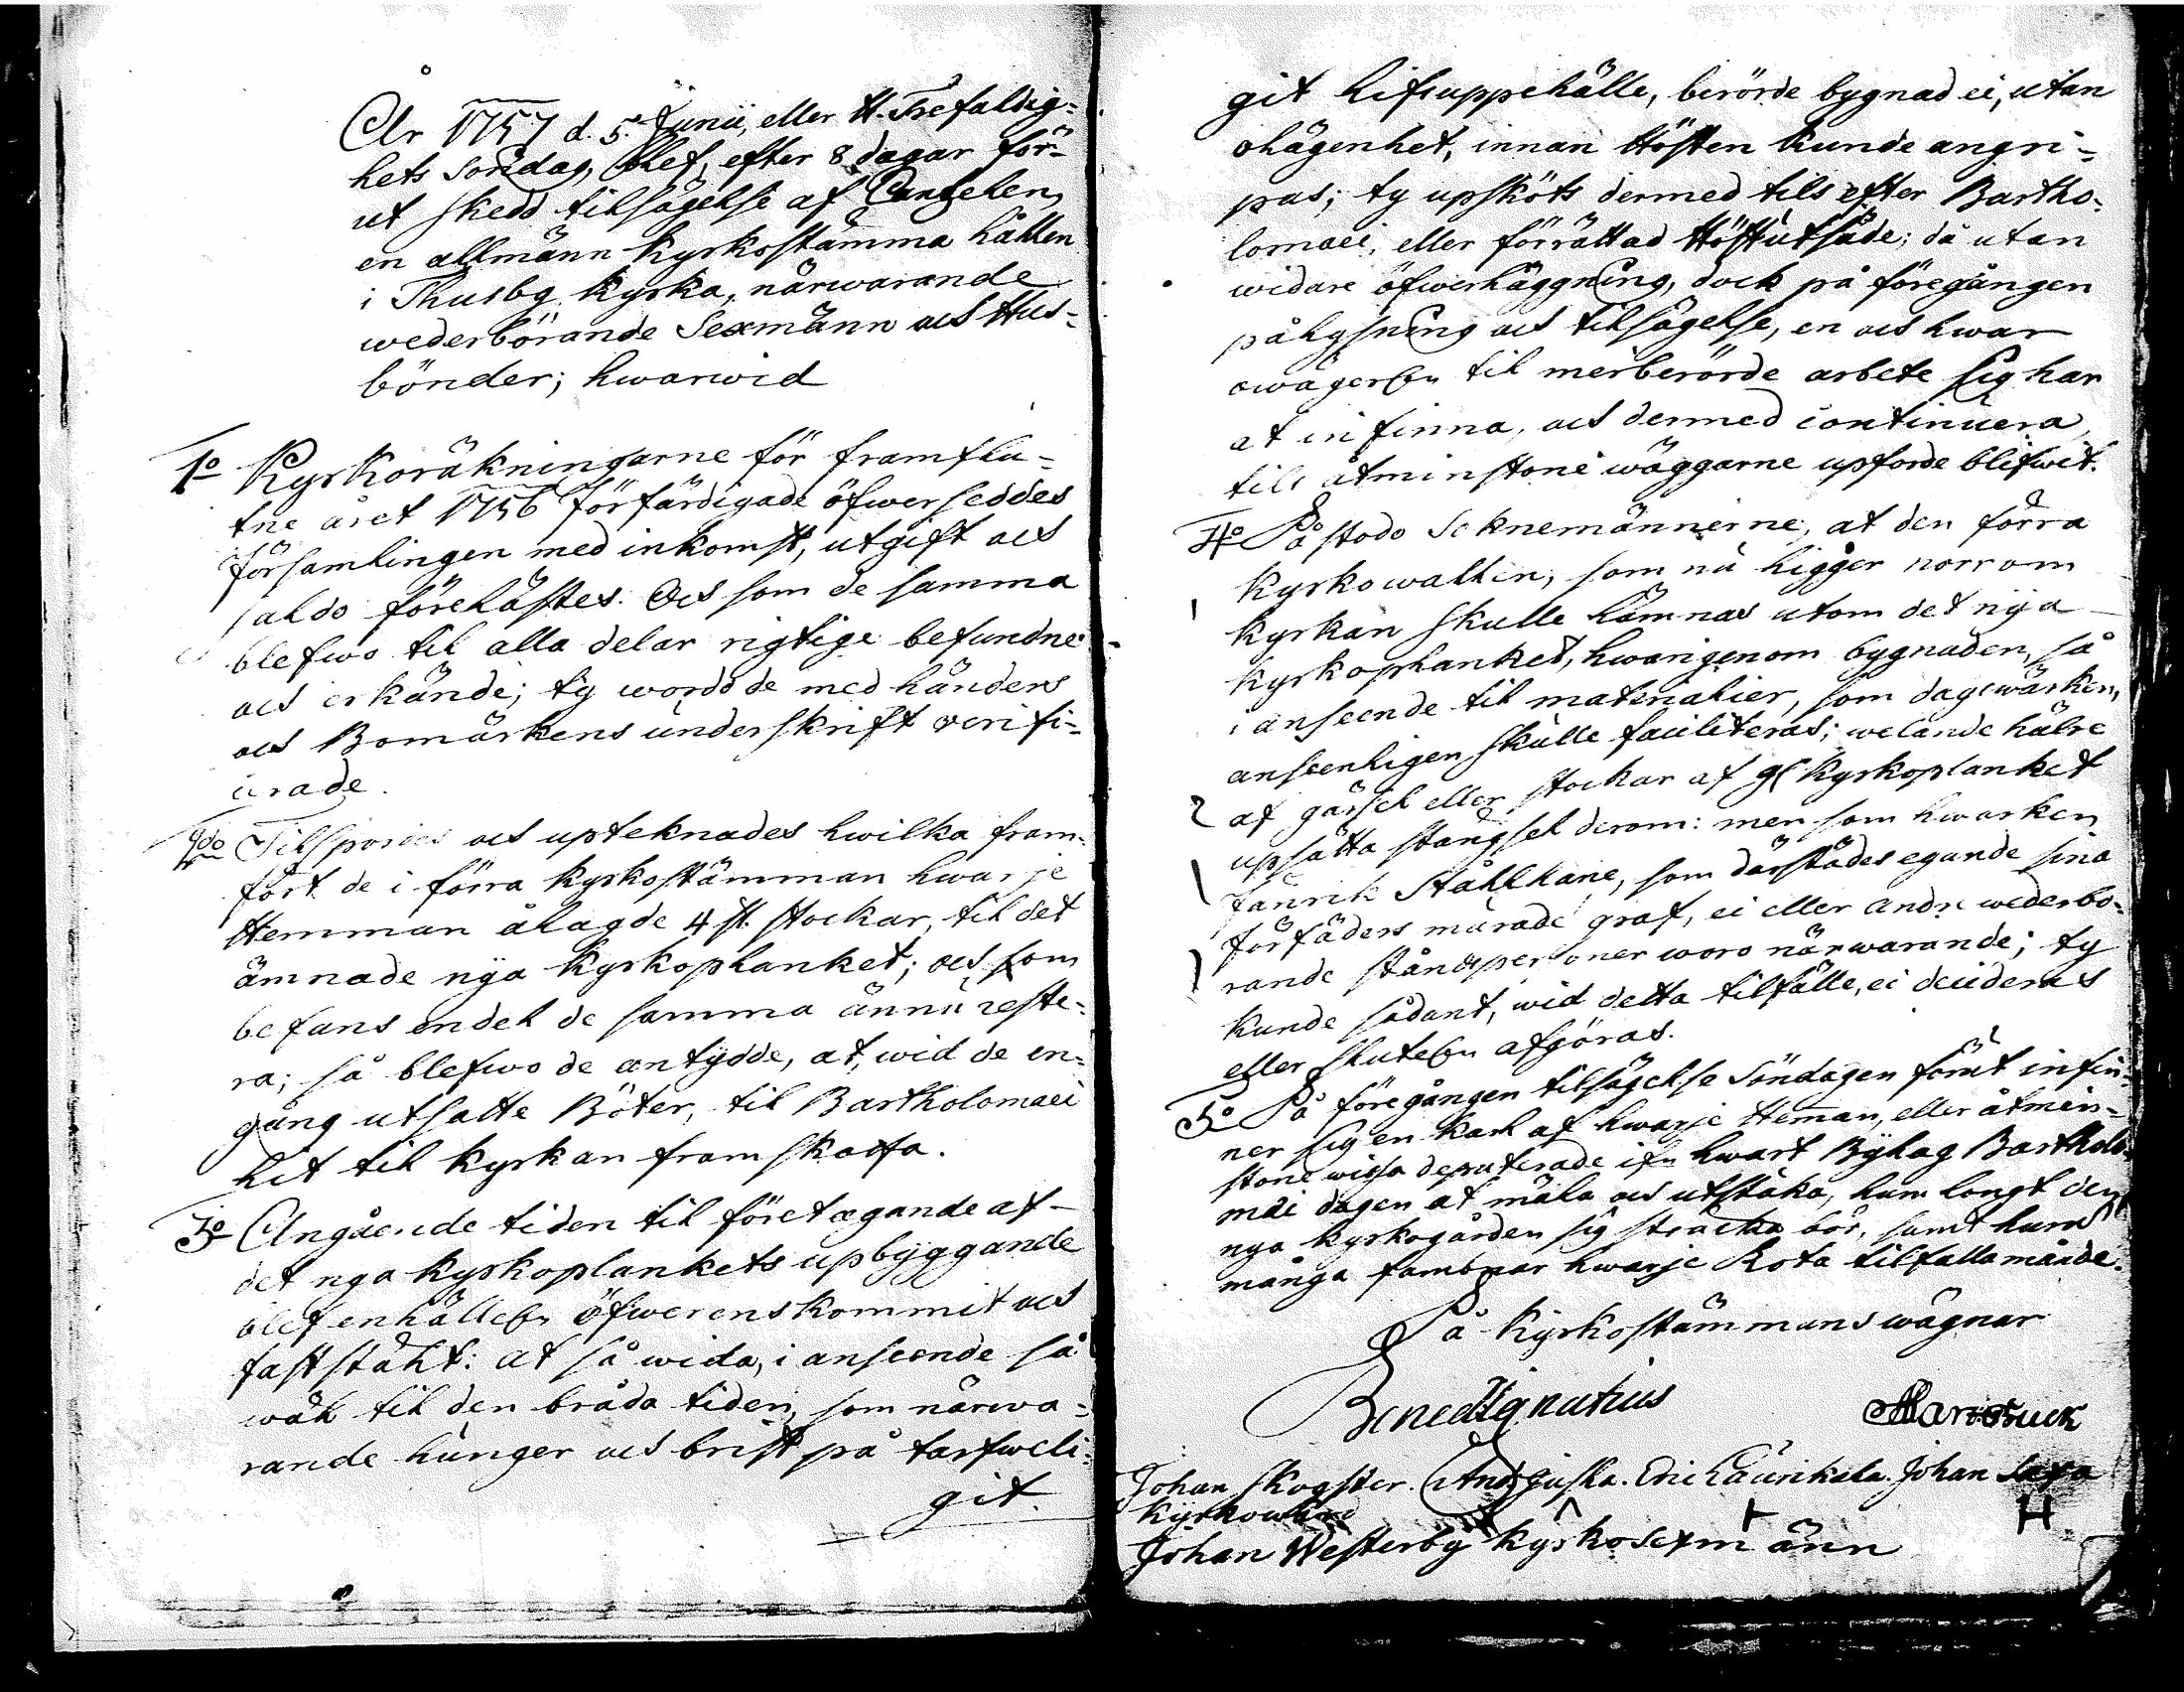 År 1757 d. 5. Junii, eller H. Trefaldig-
hets söndag, blef, efter 8 dagar för-
ut skedd tilsägelse af Cantzelen,
en allmänn kyrkostämma hållen
i Thusby kyrka, närwarande
wederbörande Sexmänn och Hus-
bönder; hwarwid
1o Kyrkoräkningarne för framflu-
tne året 1756 förfärdigade öfwerseddes
församlingen med inkomst, utgift och
saldo förelästes. Och som de samma
blefwo til alla delar rigtige befundne
och erkände; ty wordo de med händers
och Bomärkens underskrift verifi-
cerade.
2do Tilspordes och upteknades hwilka fram-
fört de i förra kyrkostämman hwarje
Hemman ålagde 4 st. stockar, til det
ämnade nya kyrkoplanket; och som
befans endel de samma ännu reste-
ra; så blefwo de antydde, at, wid de en-
gång utsatte Böter, til Bartholomaei
hit til kyrkan framskaffa.
3o Angående tiden til företagande af
det nya kyrkoplankets upbyggande
blef enhälleln öfwerenskommit och
fastståldt: at så wida, i anseende så
wäl til den bråda tiden, som närwa-
rande hunger och brist på tarfweli-
git
git lifsuppehälle, berörde bygnad ei, utan
olägenhet, innan Hösten kunde angri-
pas; ty upsköts dermed tils efter Bartho-
lomaei, eller förrättad Höstutsäde; då utan
widare öfwerläggning, dock på föregången
pålysning och tilsägelse, en och hwar
owägerln til merberörde arbete sig har
at infinna, och dermed continuera,
tils åtminstone wäggarne upförde blifwit.
4o Påstodo Soknemännerne, at den förra
kyrkowallen, som nu ligger norr om
kyrkan skulle lämnas utom det nya
kyrkoplanket, hwarigenom bygnaden, så
i anseende til materialier, som dagswärken,
anseenligen skulle faciliteras; welande hälre
af gärsel eller stockar af gl kyrkoplanket
upsätta stängsel derom: men som hwarken
Fänrik Stålhane, som därstädes egande sina
förfäders murade graf, ei eller andre wederbö-
rande ståndspersoner woro närwarande; ty
kunde sådant, wid detta tilfälle, ei decideras
eller sluteln afgöras.
5o På föregången tilsägelse Söndagen förut infin-
ner sig en karl af hwarje Heman, eller åtmin-
stone wissa deputerade ifn hwart Bylag Bartholo-
mäi dagen at mäla och utstaka, huru långt den
nya kyrkogården sig sträcka bör, samt huru
många famnar hwarje Rota tilfalla månde.
På Kyrkostämmans wägnar
Bened Ignatius
Johan Skogster. And Juska. Eric Laurikala. Johan Saxa
Kyrkowärd
Johan Westerby kyrkosexmänn